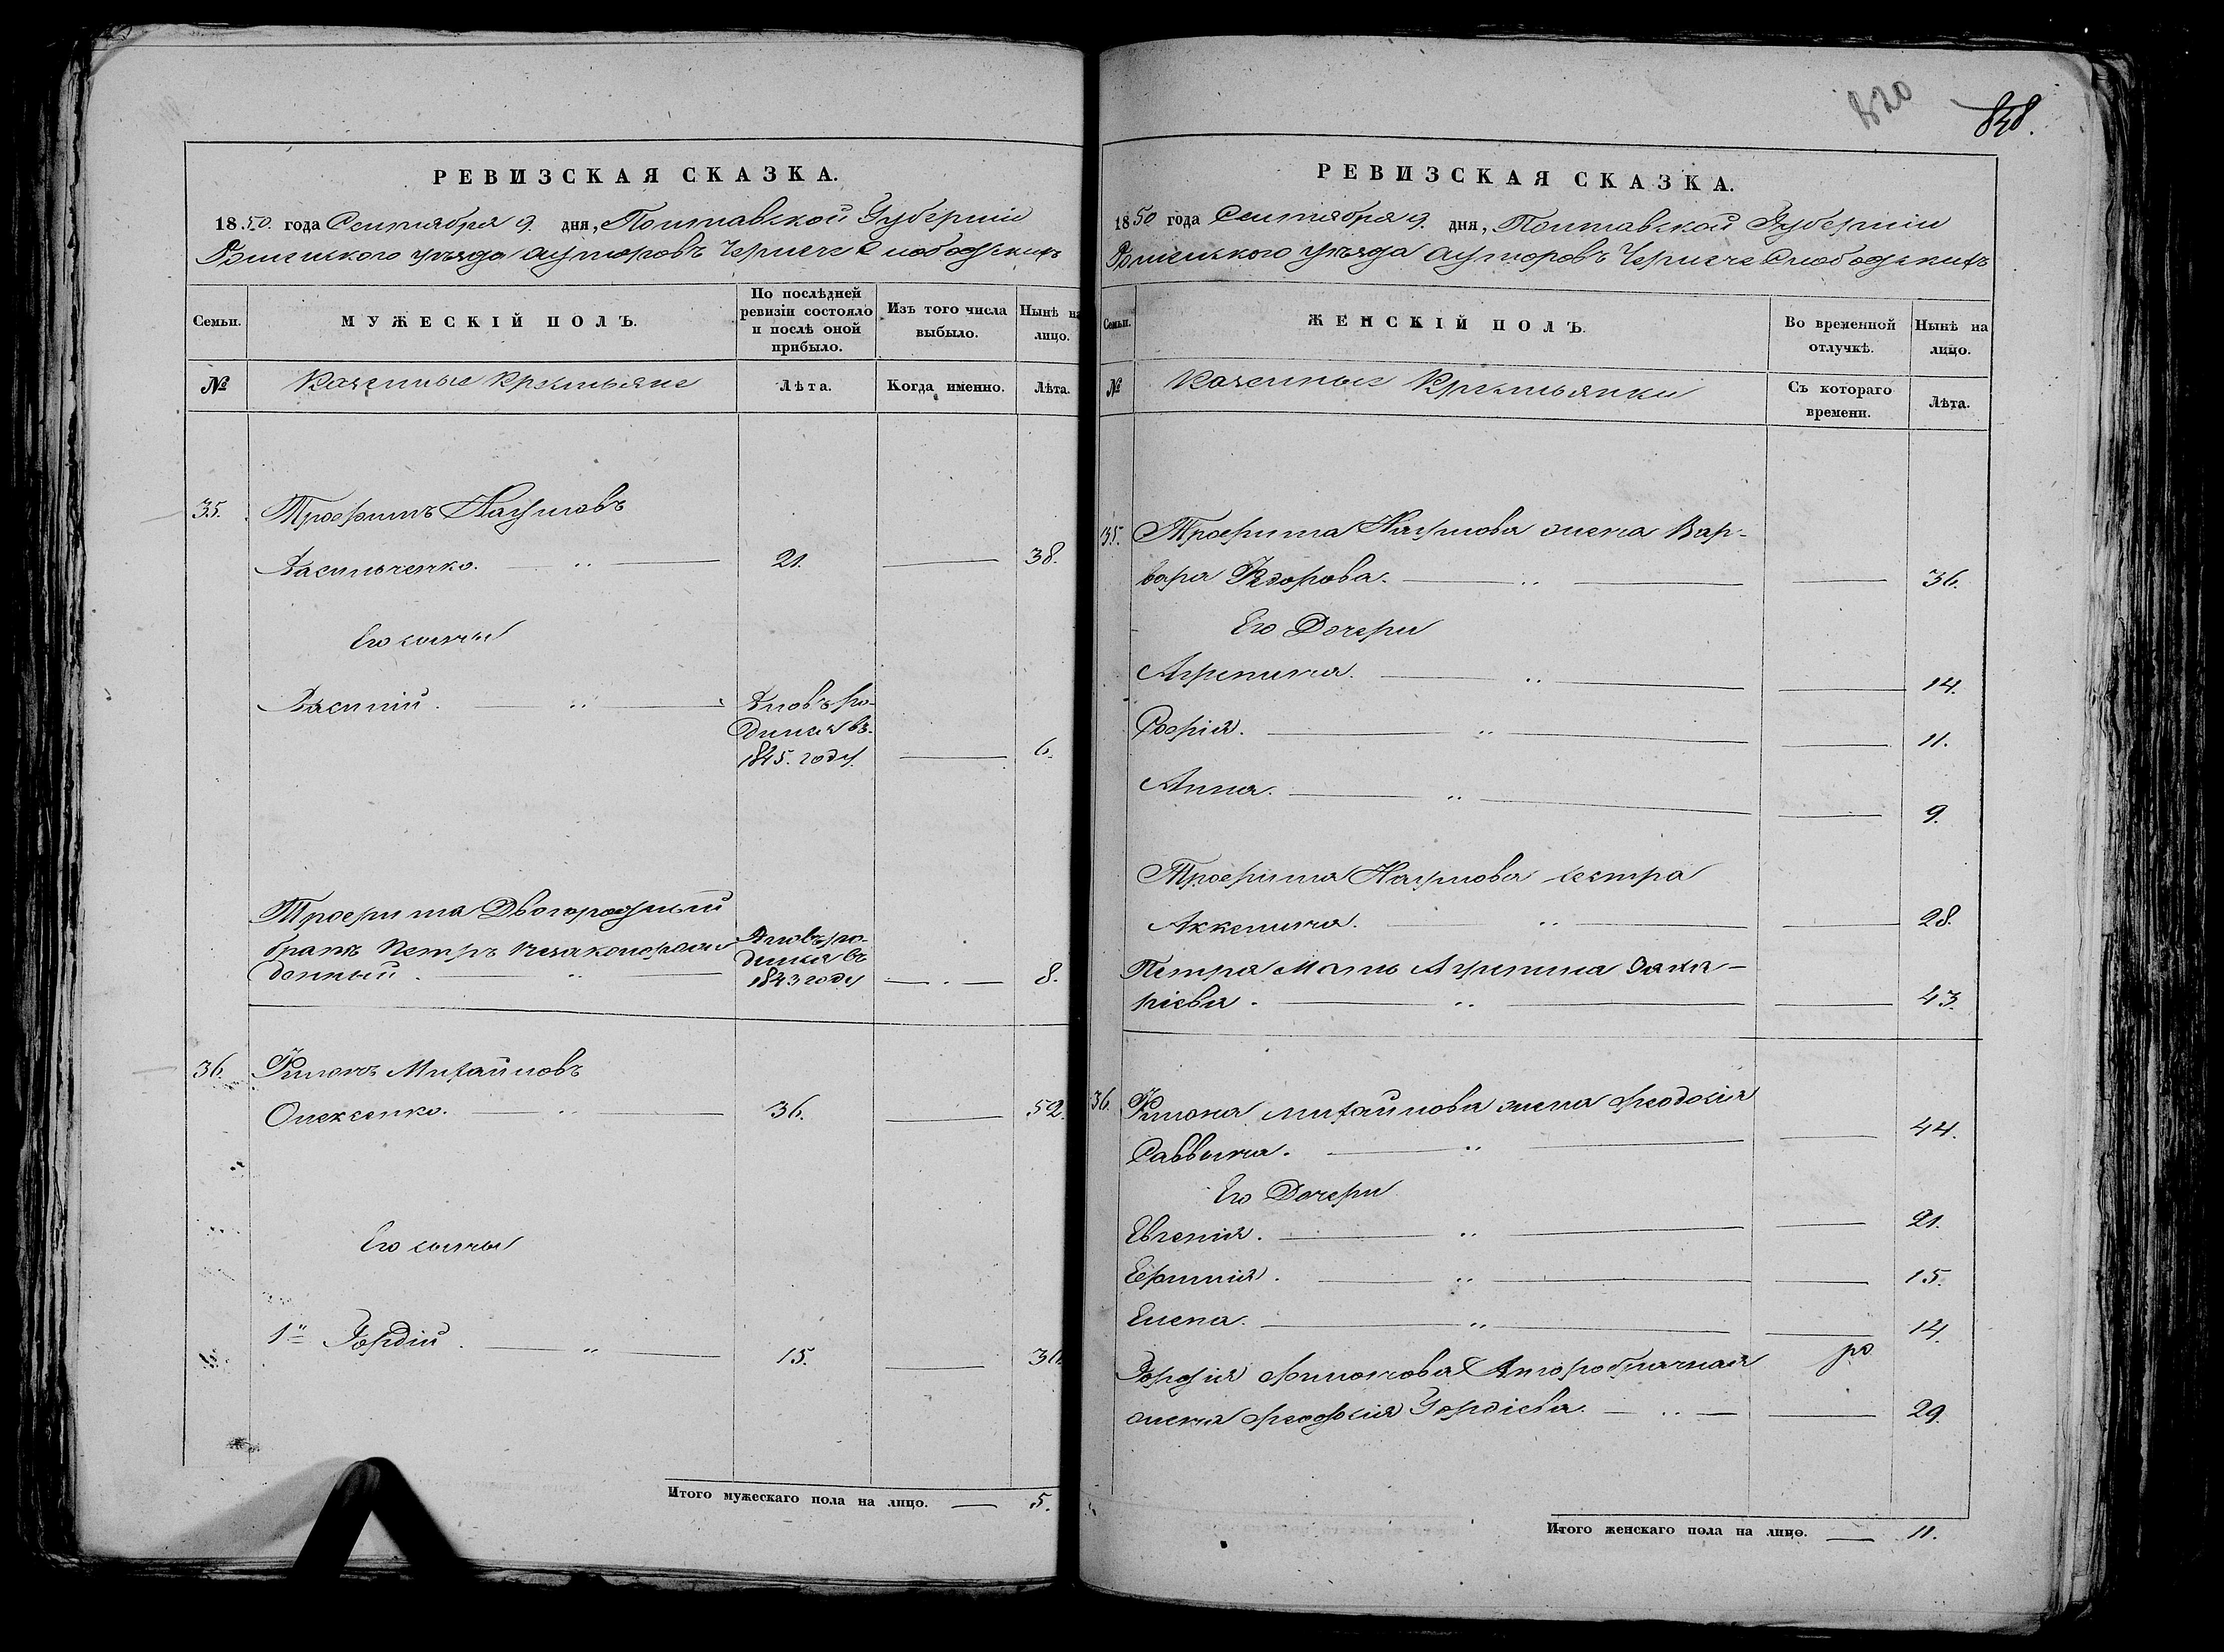 РЕВИЗСКАЯ СКАЗКА.
1850. года Сентября 9. дня, Полтавской Губерніи
Роменского уѣзда Хуторовъ Чернече Слободскихъ
Семьи.
МУЖЕСКІЙ ПОЛЪ.
По послѣдней ревизіи состояло и послѣ оной прибыло.
Изъ того числа выбыло.
Нынѣ на лицо.
№
Казенные Крестьяне
Лѣта.
Когда именно.
Лѣта.
35. Трофимъ Наумовъ
Васильченко. 21. 38.
Его сыны
Василій. Вновь ро-
дился въ
1845. году. 6.
Трофима Двоюродный
братъ Петръ Незаконорож Вновь ро-
денный. дился въ
1843 году 8.
36. Филонъ Михайловъ
Олексенко. 36. 52.
Его сыны
1й Гордій. 15. 31
Итого мужескаго пола на лицо. 5.
820
848.
РЕВИЗСКАЯ СКАЗКА.
1850 года Сентября 9. дня, Полтавской Губерніи
Роменского уѣзда Хуторовъ Чернече Слободскихъ
Семьи.
ЖЕНСКІЙ ПОЛЪ.
Во временной отлучкѣ.
Нынѣ на лицо.
№
Казенные Крестьянки
Съ котораго времени.
Лѣта.
35. Трофима Наумова жена Вар-
вара Федорова. 36.
Его Дочери
Агрепина. 14.
Софія. 11.
Анна. 9.
Трофима Наумова сестра
Аккелина. 28.
Петра Мать Агрепина Заха-
ріева. 43.
36. Филона Михайлова жена Феодосія
Саввина. 44.
Его Дочери
Евгенія. 21.
Ефимія. 15.
Елена. 14.
Гордія Филонова Второбрачная
жена Феодосія Гордіева. 29.
Итого женскаго пола на лицо. 11.